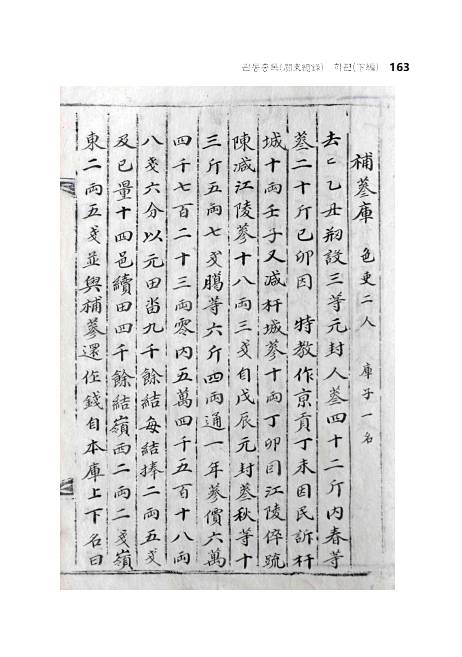 관동총록(關東總錄) 하편(下編) 163
補蔘庫 色吏二人 庫子一名
去乙丑刱設三等元封人蔘四十二斤內春等
蔘二十斤己卯因 特敎作京貢丁未因民訴杆
城十兩壬子又减杆城蔘十兩丁卯因江陵倅䟽
陳减江陵蔘十八兩三戔自戊辰元封蔘秋等十
三斤五兩七戔臈等六斤四兩通一年蔘價六萬
四千七百二十三兩零內五萬四千五百十八兩
八戔六分以元田畓九千餘結每結捧二兩五戔
及已量十四邑續田四千餘結嶺西二兩二戔嶺
東二兩五戔並與補蔘還作錢自本庫上下名曰